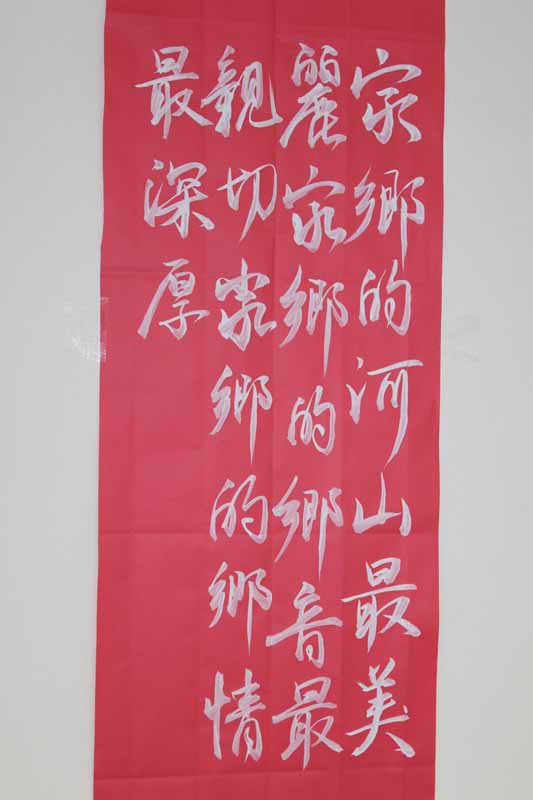 家鄉的河山最美
麗家鄉的鄉音最
親切家鄉的鄉情
最深厚